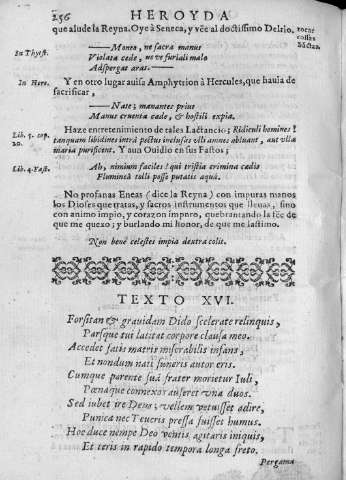 256 HEROYDA
que alude la Reyna. Oye à Seneca, y vče al doctissimo Delrio.
In Thyest. —— Moneo, ne sacra manus
Violata cede, no ve furiali malo
Adspergas aras. ——
In Herc. Y en otro lugar auisa Amphytrion à Hercules, que hauia de
sacrificar,
—— Nate; manantes prius
Manus cruenta cede, & hostili expia.
Lib. 5. cap. 20. Haze entretenimiento de tales Lactancio; Ridiculi homines!
tanquam libidines intra pectus inclusas vlli amnes abluant, aut vlla
maria purificent. Y aun Ouidio en sus Fastos;
Lib. 4. Fast. Ah, nimium faciles! qui tristia crimina cædis
Flumineâ tolli posse putatis aquâ.
No profanas Eneas (dice la Reyna) con impuras manos
los Dioses que tratas, y sacros instrumentos que lleuas, sino
con animo impio, y corazon impuro, quebrantando la fèe de
que me quexo; y burlando mi honor, de que me lastimo.
Non benè celestes impia dextra colit.
TEXTO XVI.
Forsitan & grauidam Dido scelerate relinquis,
Parsque tui latitat corpore clausa meo.
Accedet fatis matris miserabilis infans,
Et nondum nati funeris autor eris.
Cumque parente suâ frater morietur Iuli,
Pœnaque connexos auferet vna duos.
Sed iubet ire Deus; vellem vetuisset adire,
Punica nec Teucris pressa fuisset humus.
Hoc duce nempe Deo ventis agitaris iniquis,
Et teris in rapido tempora longa freto.
Pergama